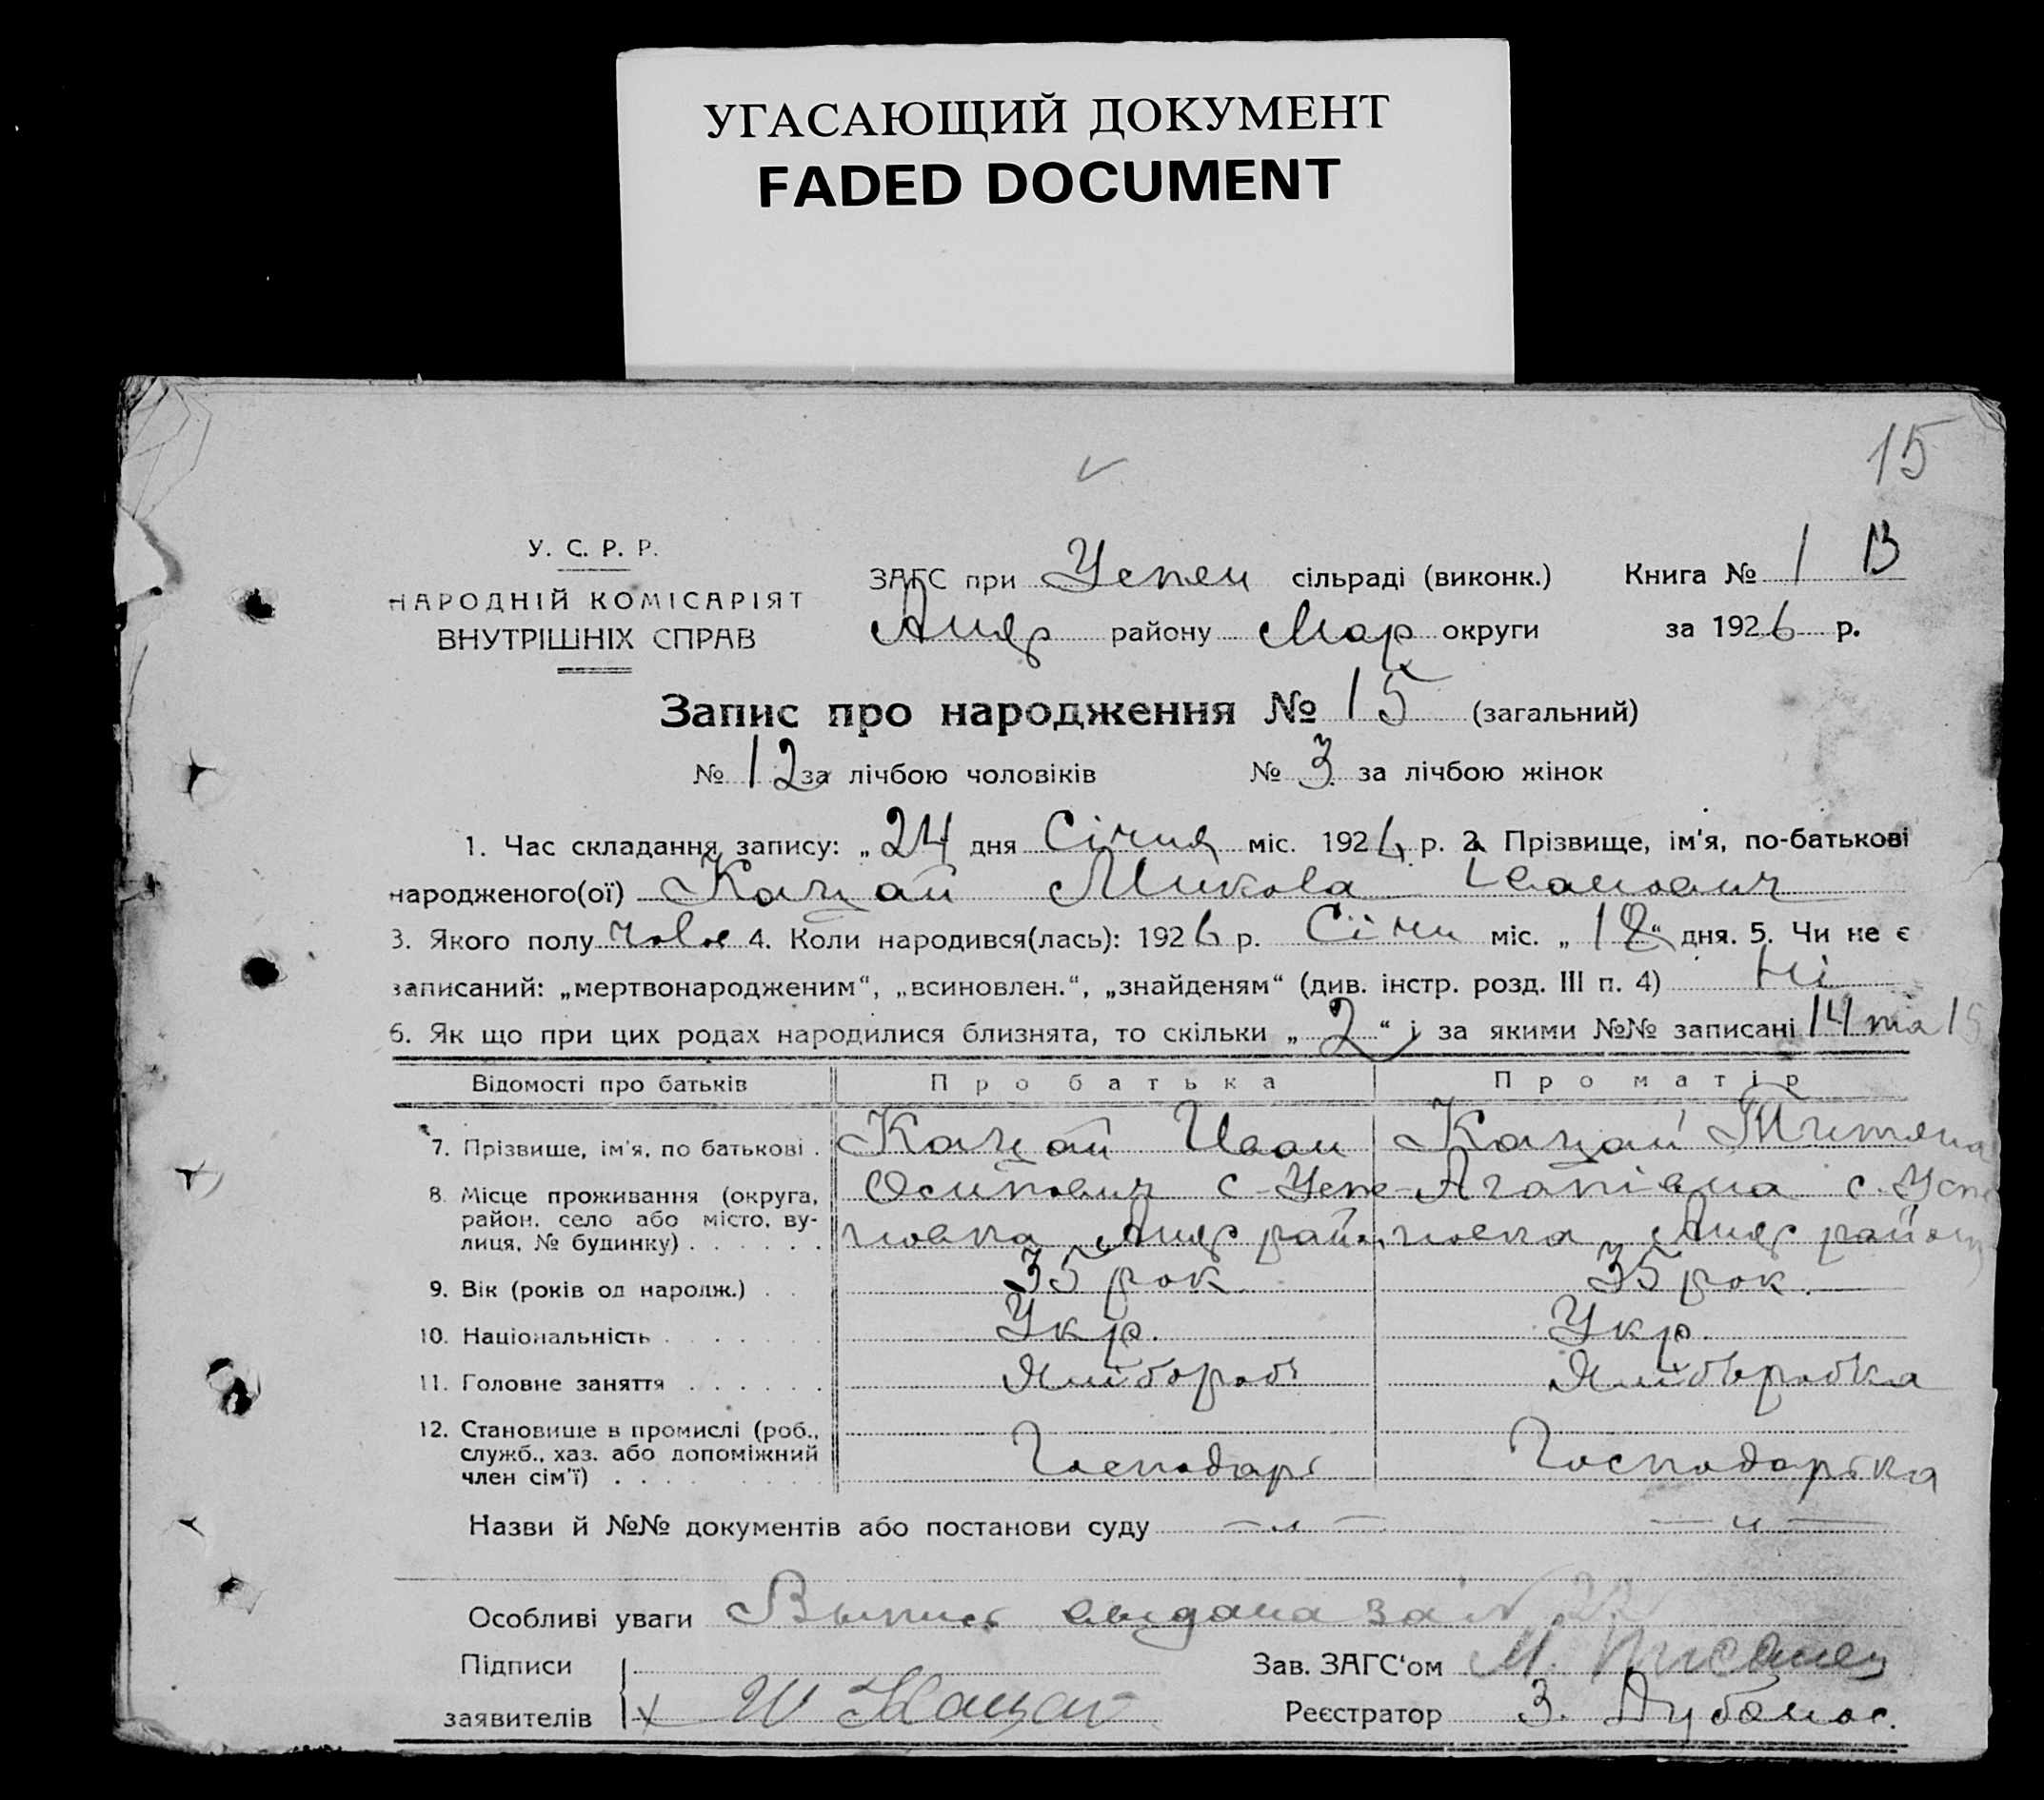 УГАСАЮЩИЙ ДОКУМЕНТ
FADED DOCUMENT
15
У. С. Р. Р.
НАРОДНІЙ КОМІСАРІЯТ
ВНУТРІШНІХ СПРАВ
ЗАГС при Успен сільраді (виконк.) Книга № 1 В
району Мар округи за 1926 р.
Запис про народження № 15 (загальний)
№ 12 за лічбою чоловіків № 3 за лічбою жінок
1. Час складання запису: „24 дня Січня міс. 1926 р. 2. Прізвище, ім'я, по-батькові
народженого(ої) Кацай Микола Іванович
3. Якого полу чолов 4. Коли народився(лась): 1926 р. Січн міс. „18“ дня. 5. Чи не є
записаний: „мертвонародженим“, „всиновлен.“, „знайденям“ (див. інстр. розд. III п. 4) Ні
6. Як що при цих родах народилися близнята, то скільки „2“ і за якими №№ записані 14 та 15
Відомості про батьків Про батька Про матір
7. Прізвище, ім'я, по батькові . Кацай Иван Кацай
8. Місце проживання (округа, Осипович с. Успе- Агапієвна с. Успе
район, село або місто, ву-
лиця, № будинку) . . . . . . новка район новка району
9. Вік (років од народж.) . . 35 рок 35 рок.
10. Національність . . . . . . . Укр. Укр.
11. Головне заняття . . . . . . Хлібороб Хліборобка
12. Становище в промислі (роб.,
служб., хаз. або допоміжний Господарь Господарька
член сім'ї) . . . .
Назви й №№ документів або постанови суду — „ — — „ —
Особливі уваги Выпись выдана за № 22
Підписи Зав. ЗАГС'ом М. Писанец
заявителів Х И Кацай Реєстратор З.